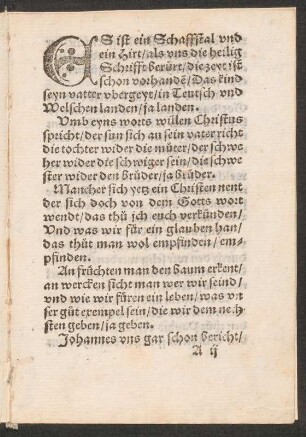 ES ist ein Schaffstal vnd
ein Hirt/als vns die heilig
Schrifft berürt/die zeyt ist
schon vorhandē/Das kind
seyn vatter vbergeyt/in Teutsch vnd
Welschen landen/ja landen.
Vmb eyns worts wülen Christus
spricht/der sun sich an sein vater richt
die tochter wider die můter/der schwe
her wider die schwiger sein/die schwe
ster wider den brůder/ja brůder.
Mancher sich yetz ein Christen nent
der sich doch von dem Gotts wort
wendt/das thů jch euch verkünden/
Vnd was wir für ein glauben han/
das thůt man wol empfinden/em-
pfinden.
An früchten man den baum erkent/
an wercken sicht man wer wir seind/
vnd wie wir füren ein leben/was vn
ser gůt exempel sein/die wir dem neh
sten geben/ja geben.
Johannes vns gar schon bericht/
A ij